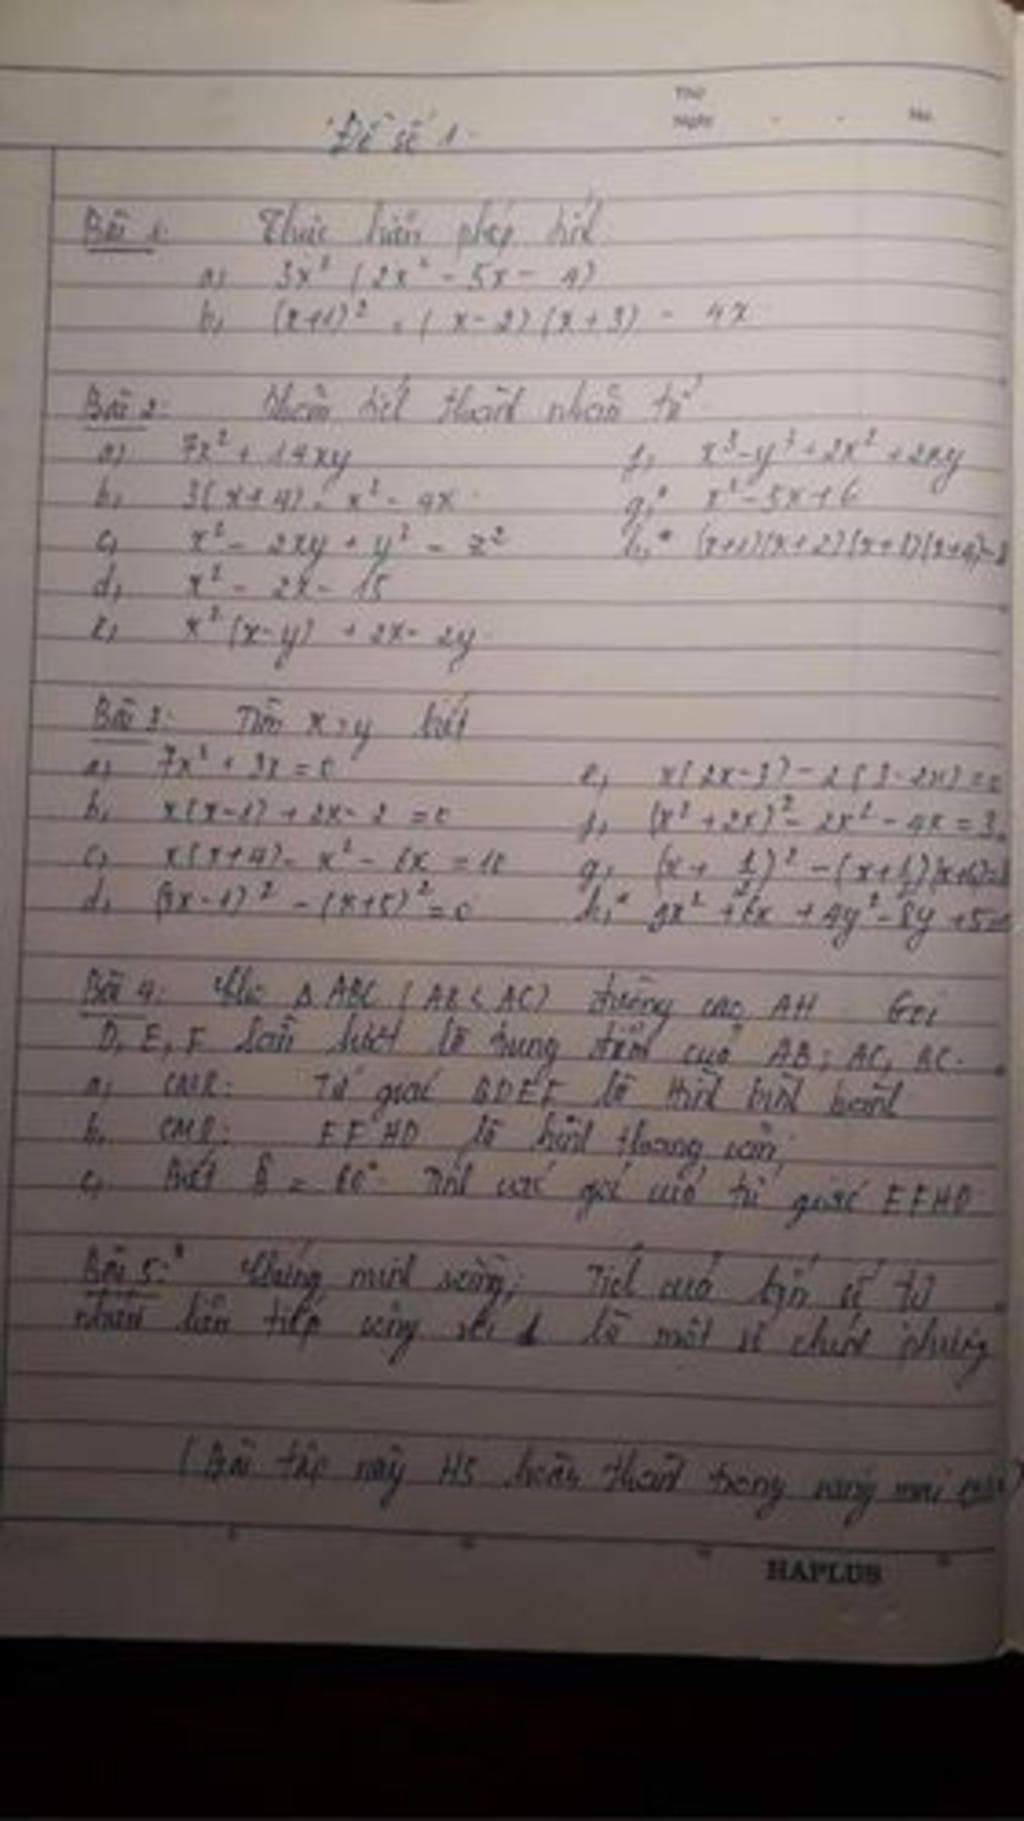 Thứ
Ngày No.
Đề số 1
Bài 1: Thực hiện phép tính
a, 3x² (2x² - 5x - 4)
b, (x+1)² + (x-2)(x+3) - 4x
Bài 2: Phân tích thành nhân tử
a, 7x² + 14xy
b, 3(x+4) - x² - 4x
c, x² - 2xy + y² - z²
d, x² - 2x - 15
e, x²(x-y) + 2x - 2y
f, x³ - y³ + 2x² + 2xy
g,* x² - 5x + 6
h,* (x+1)(x+2)(x+3)(x+4) -
Bài 3: Tìm x, y biết
a, 7x² + 3x = 0
b, x(x-1) + 2x - 2 = 0
c, x(x+4) - x² - 6x = 10
d, (3x-1)² - (x+5)² = 0
e, x(2x-3) - 2(3-2x) = 0
f, (x² + 2x)² - 2x² - 4x = 3
g, (x + 1/2)² - (x + 1/2)(x+6) =
h,* 9x² + 6x + 4y² - 8y + 5 =
Bài 4: Cho Δ ABC (AB < AC) đường cao AH Gọi
D, E, F lần lượt là trung điểm của AB, AC, BC.
a, CMR: Tứ giác BDEF là hình bình hành
b, CMR: EFHD là hình thang cân
c, Biết B̂ = 60° Tính các góc của tứ giác EFHD
Bài 5:* Chứng minh rằng, Tích của bốn số tự
nhiên liên tiếp cộng với 1 là một số chính phương
(Bài tập này HS hoàn thành trong sáng mai
HAPLUS